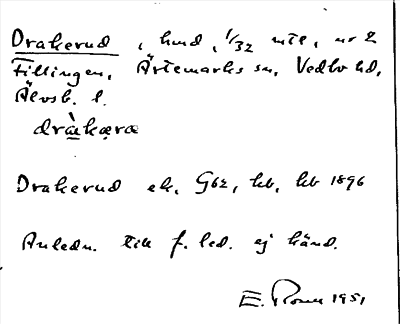 Drakerud, hmd, 1/32 mtl, nr 2
Fillingen, Ärtemarks sn, Vedbo hd,
Älvsb. l.
dràkæræ
Drakerud ek, G62, hb, kb 1896
Anledn. till f. led. ej känd.
E. 1951